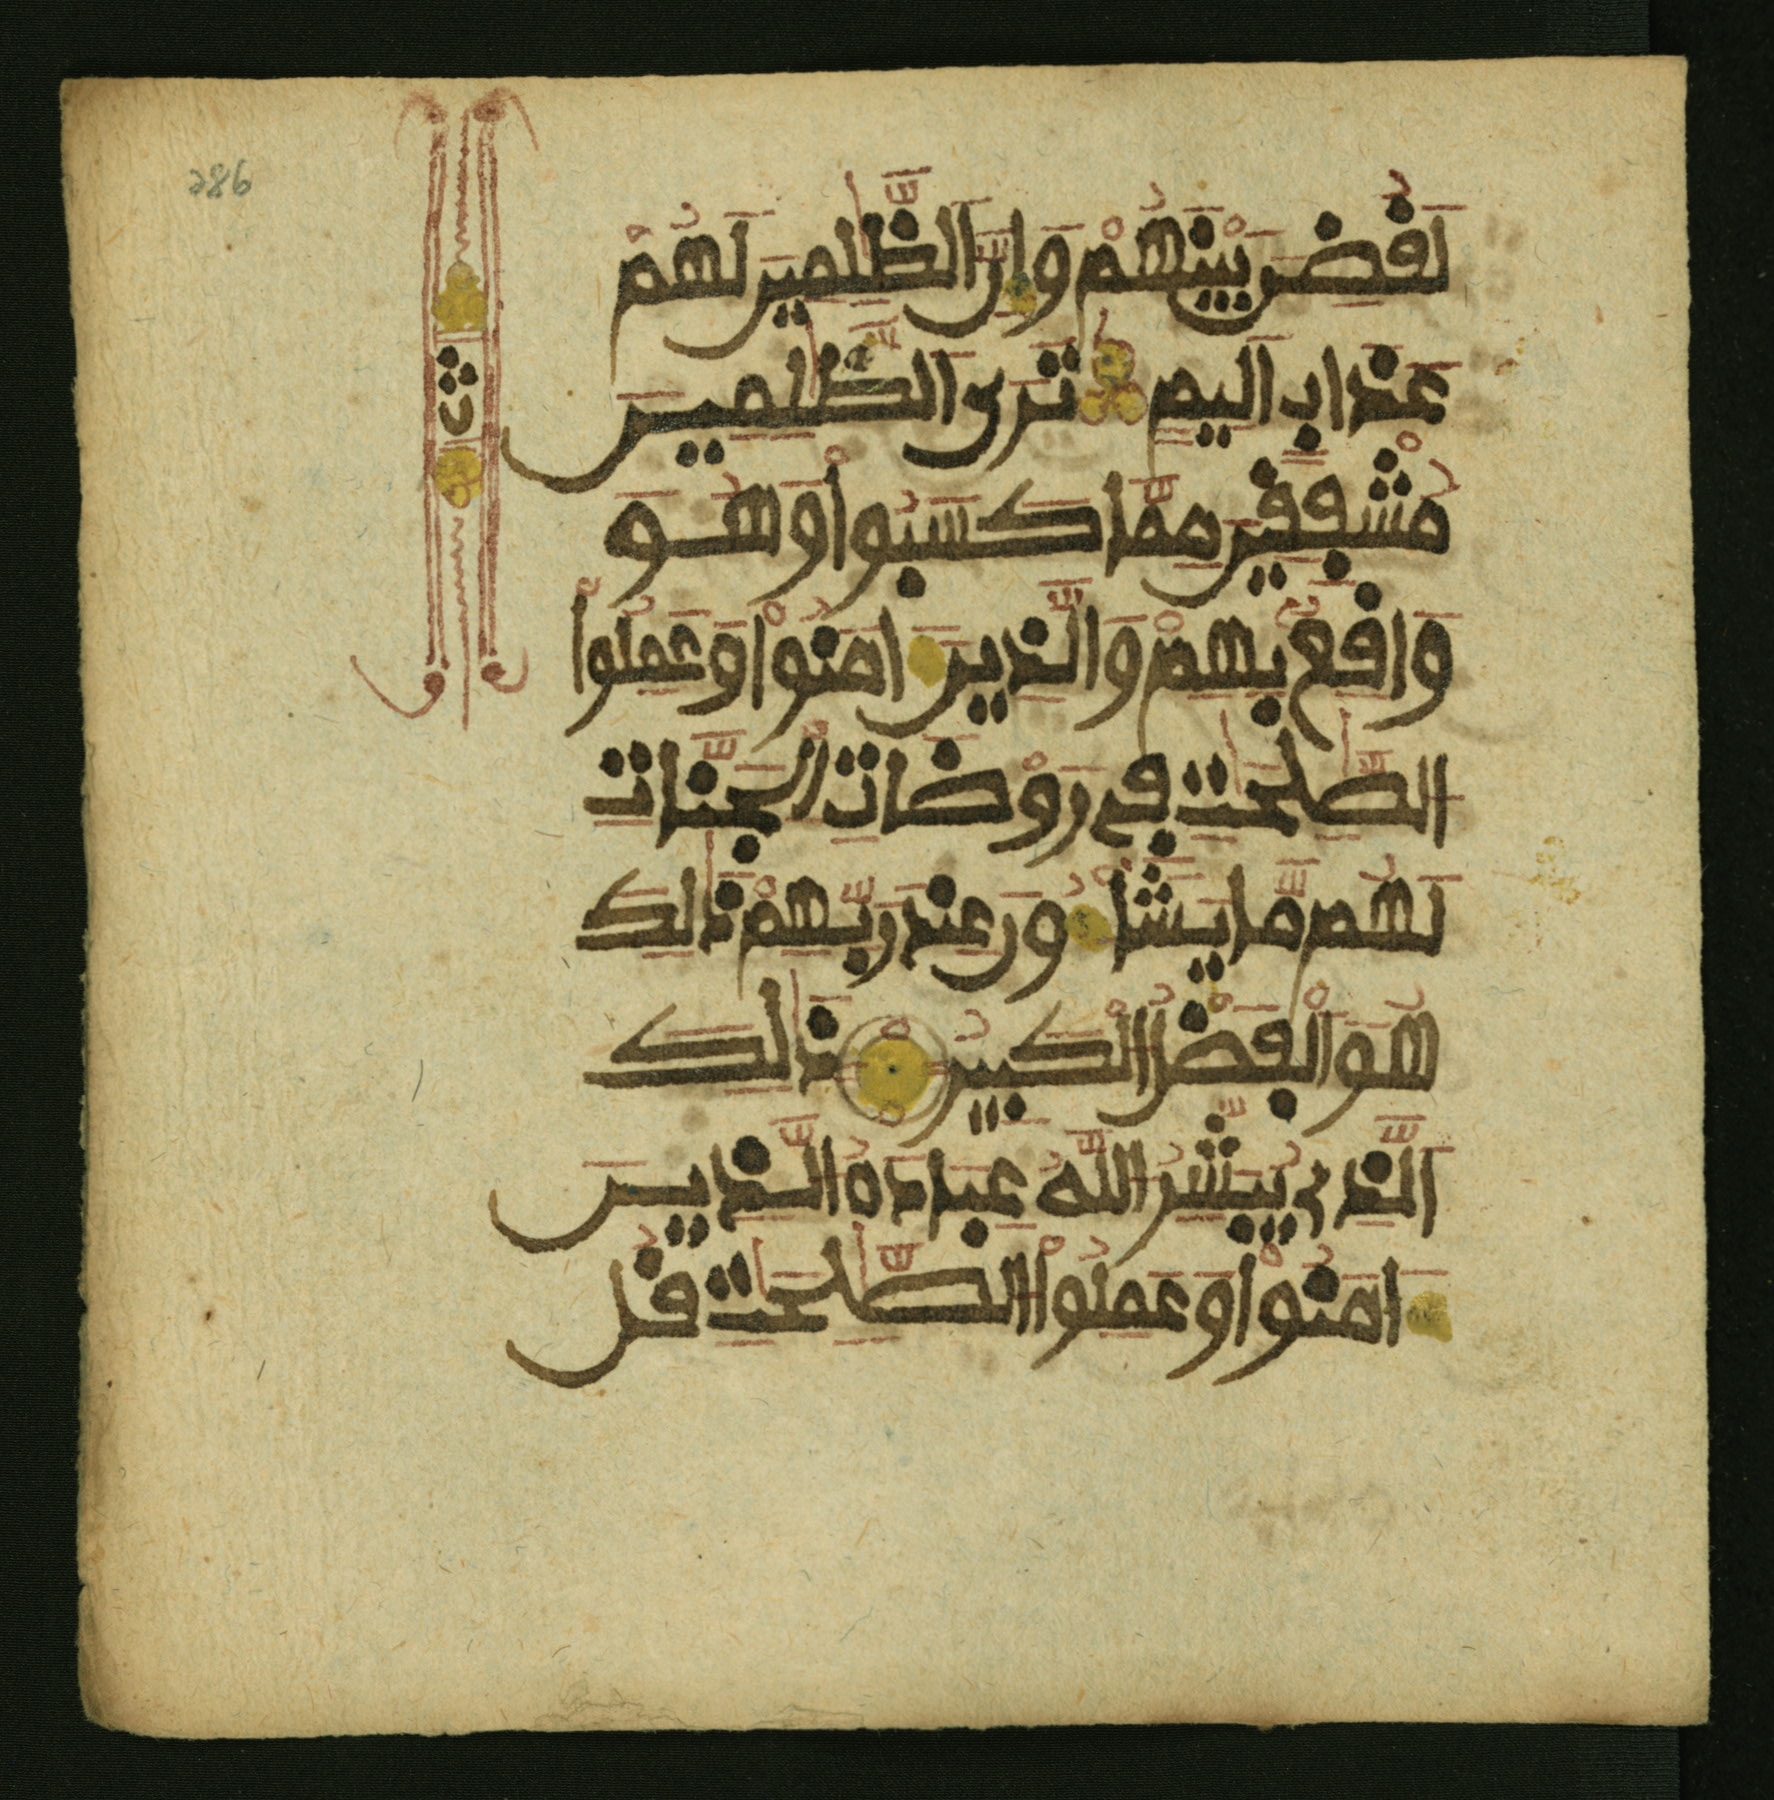 286
لَفُضِيَ بَيْنَهُمْ وَإِنَّ ٱلظَّٰلِمِينَ لَهُمْ
عَذَابٌ اَلِيمٌ تَرَى ٱلظَّٰلِمِينَ
ث
مُشْفِقِينَ مِمَّا كَسَبُواْ وَهُوَ
وَاقِعٌ بِهِمْ وَالَّذِينَ ءَامَنُواْ وَعَمِلُواْ
ٱلصَّٰلِحَٰتِ فِي رَوْضَاتِ ٱلْجَنَّاتِ
لَهُم مَّا يَشَآءُونَ عِندَ رَبِّهِمْ ذَٰلِكَ
هُوَ ٱلْفَضْلُ ٱلْكَبِيرُ ذَٰلِكَ
ٱلَّذِي يُبَشِّرُ ٱللَّهُ عِبَادَهُ ٱلَّذِينَ
ءَامَنُواْ وَعَمِلُواْ ٱلصَّٰلِحَٰتِ قُل